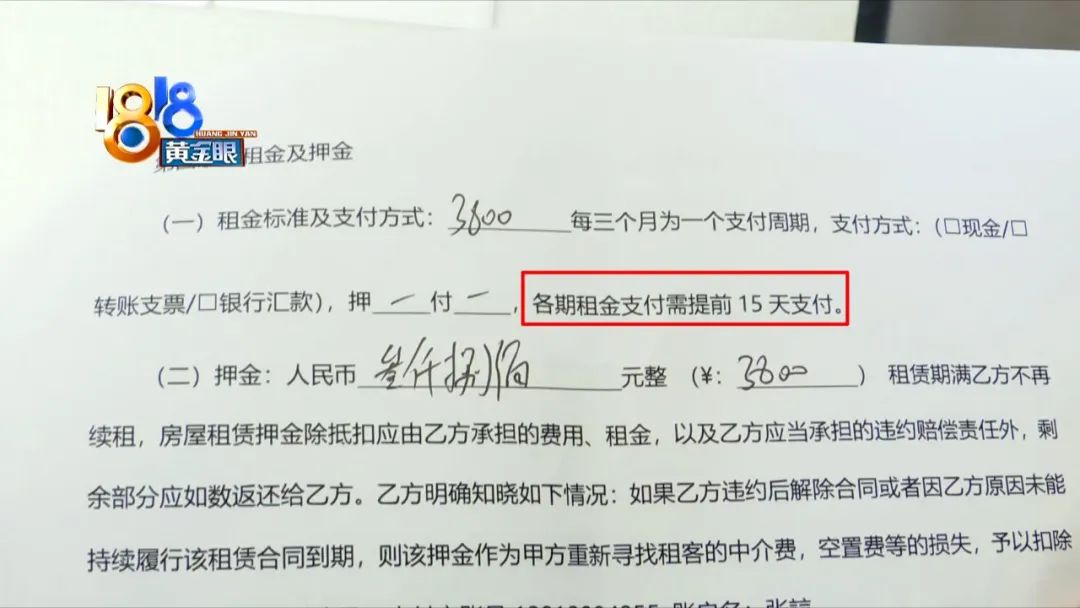 1818
HUANG JIN YAN
黄金眼
租金及押金
（一）租金标准及支付方式：3800 每三个月为一个支付周期，支付方式：（□现金/□
转账支票/□银行汇款），押一付一，各期租金支付需提前 15 天支付。
（二）押金：人民币叁仟捌佰元整（¥：3800）租赁期满乙方不再
续租，房屋租赁押金除抵扣应由乙方承担的费用、租金，以及乙方应当承担的违约赔偿责任外，剩
余部分应如数返还给乙方。乙方明确知晓如下情况：如果乙方违约后解除合同或者因乙方原因未能
持续履行该租赁合同到期，则该押金作为甲方重新寻找租客的中介费，空置费等的损失，予以扣除